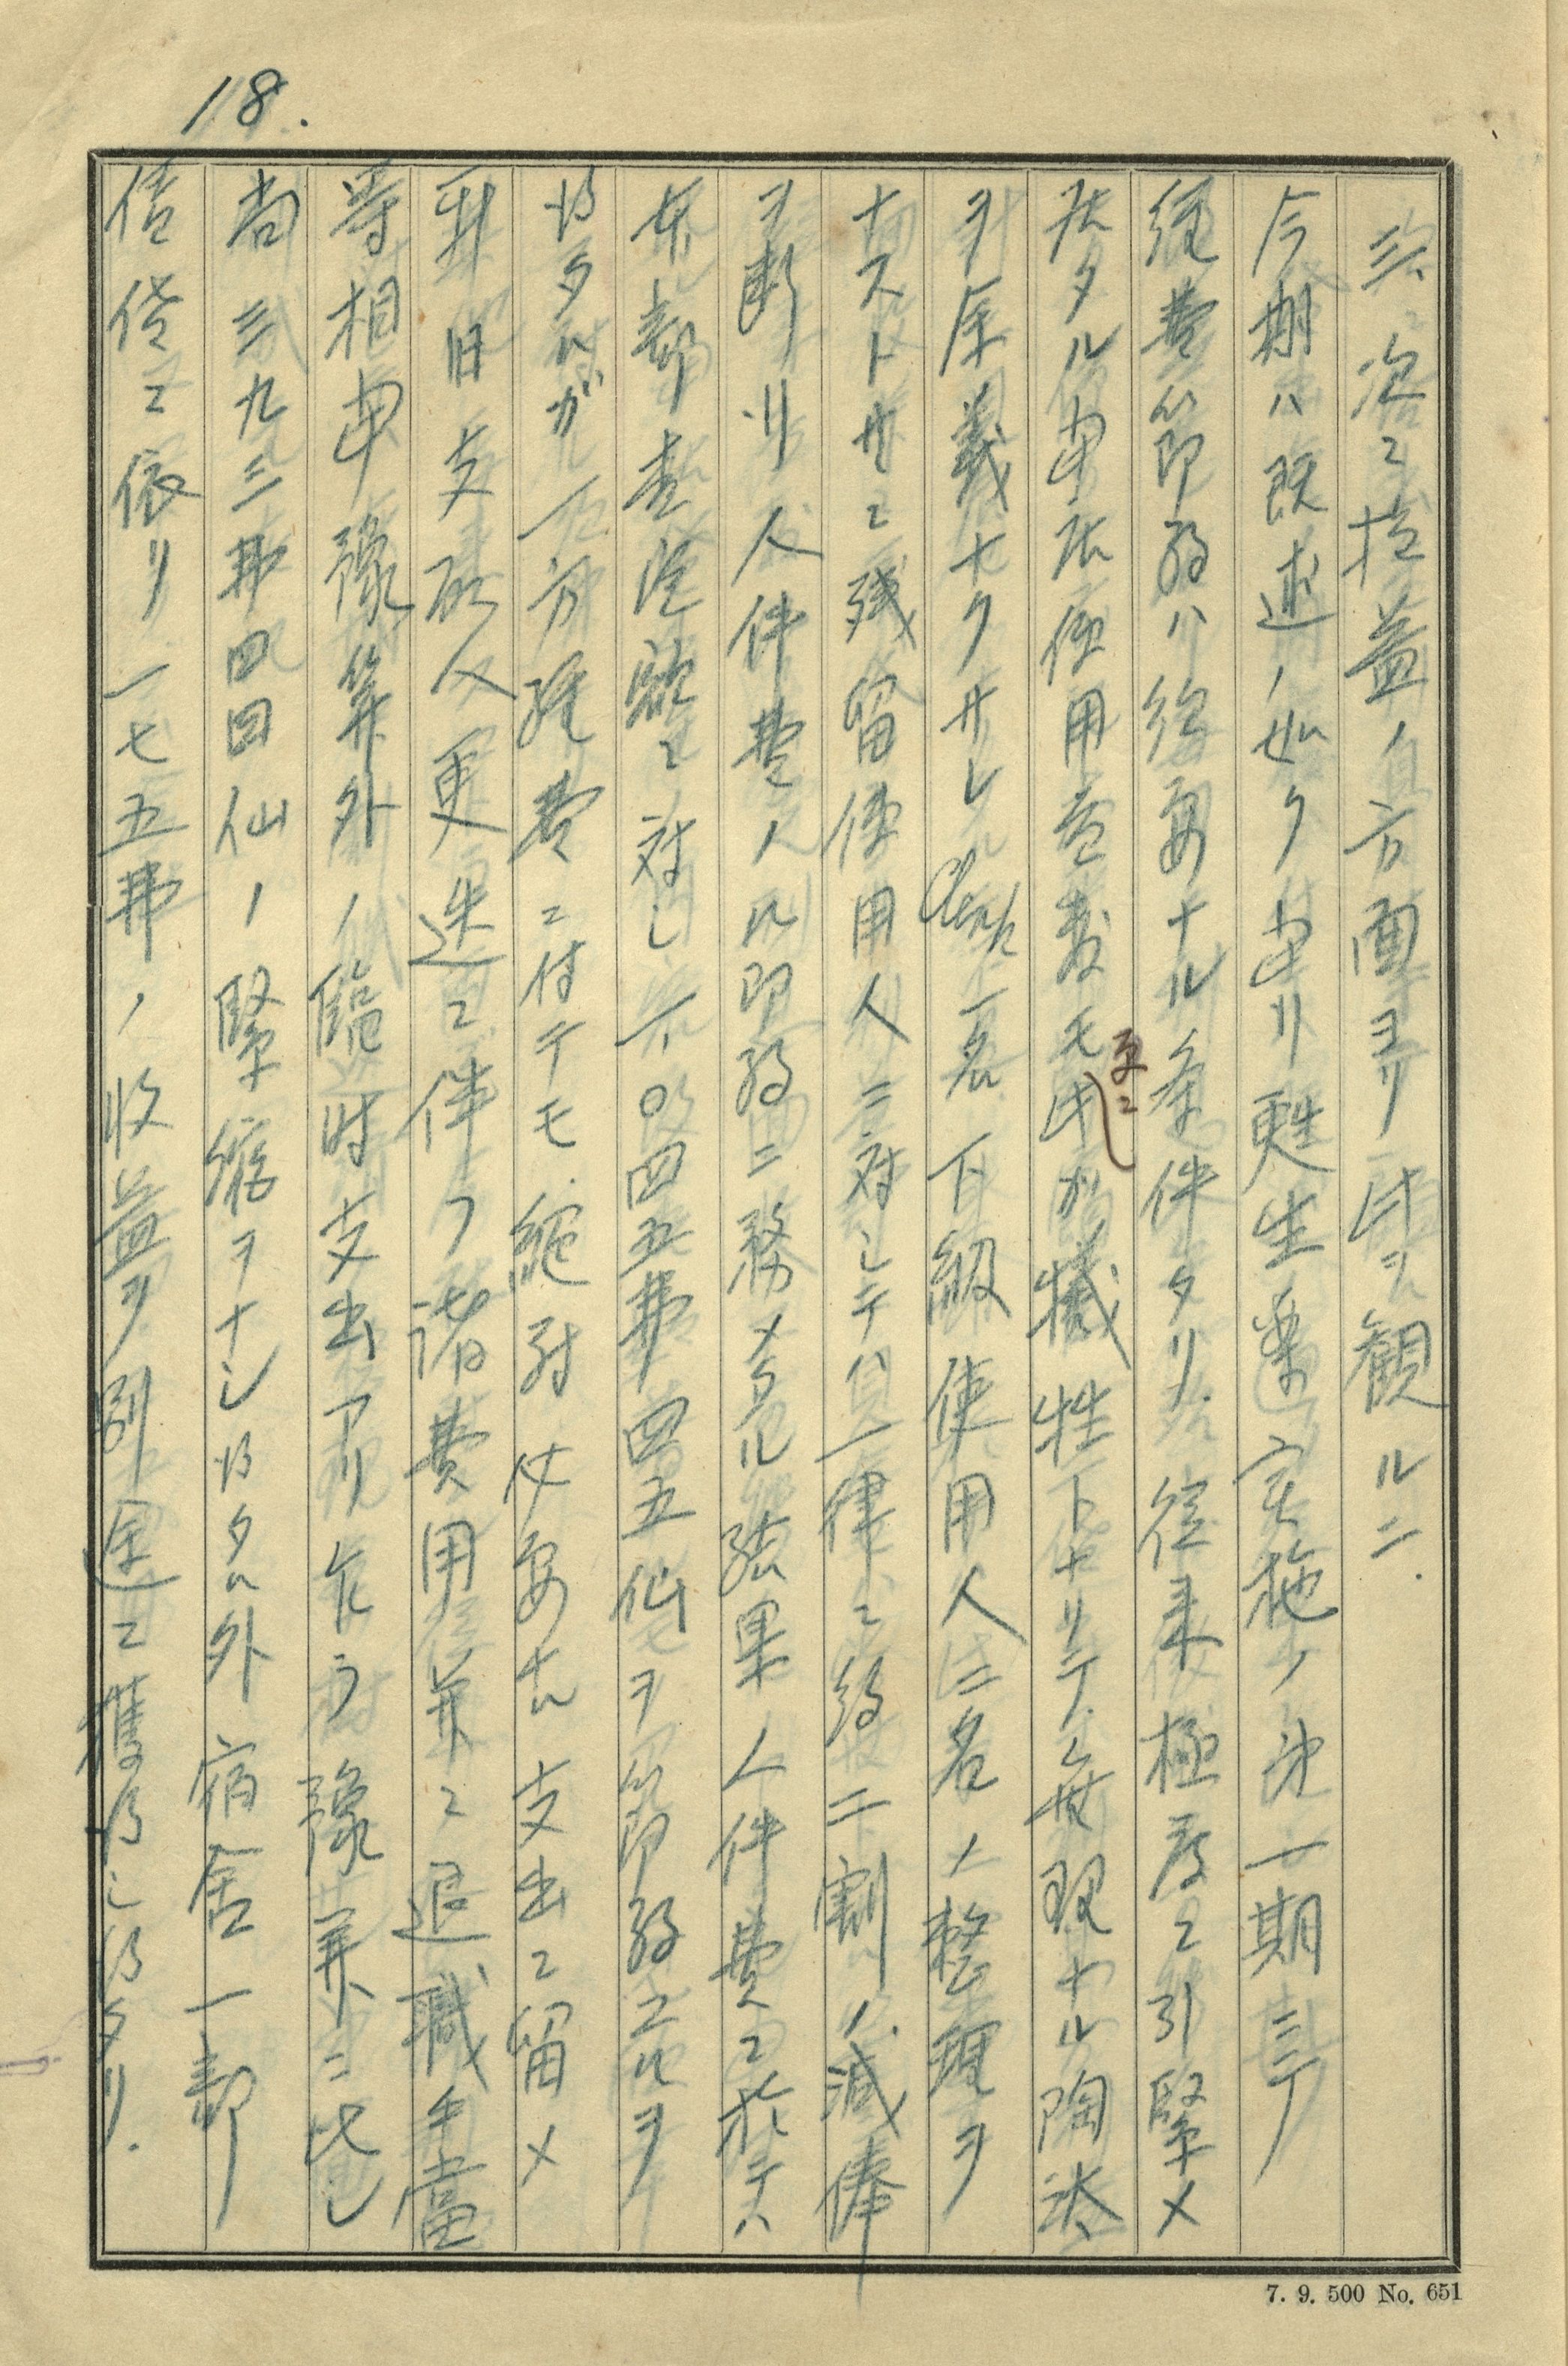 18.
三、次ニ損益ノ方面ヨリ此ヲ観ルニ.
今期ハ既述ノ如ク当リ甦生案実施ノ第一期ニテ
経費節約ハ緊要ナル条件タリ.従来極度ニ引緊メ
居タル当店使用人数モ更ニ此が犠牲トナリテ無理ナル陶汰
ヲ余義ナクサレ Clerk一名下級使用人二名ノ整理ヲ
ナスト共ニ残留使用人ニ対シテハ一律ニ約二割ノ減俸
ヲ断リ人件費ノ節約ニ務メタル結果人件費ニ於テハ
本部査定額ニ対し一、〇四五弗四五仙ヲ節約スルヲ
得タルガ一方経費ニ付テモ絶対必要ナル支出ニ留メ
新旧支配人更迭ニ伴フ諸費用並ニ退職手當
等相当豫算外ノ臨時支出アリ乍ラ豫算ニ比し
尚三九三弗四四仙ノ緊縮ヲナシ得タル外宿舎一部
賃貸ニ依リ一七五弗ノ收益ヲ別途ニ獲得し得タリ.
7. 9. 500 No. 651